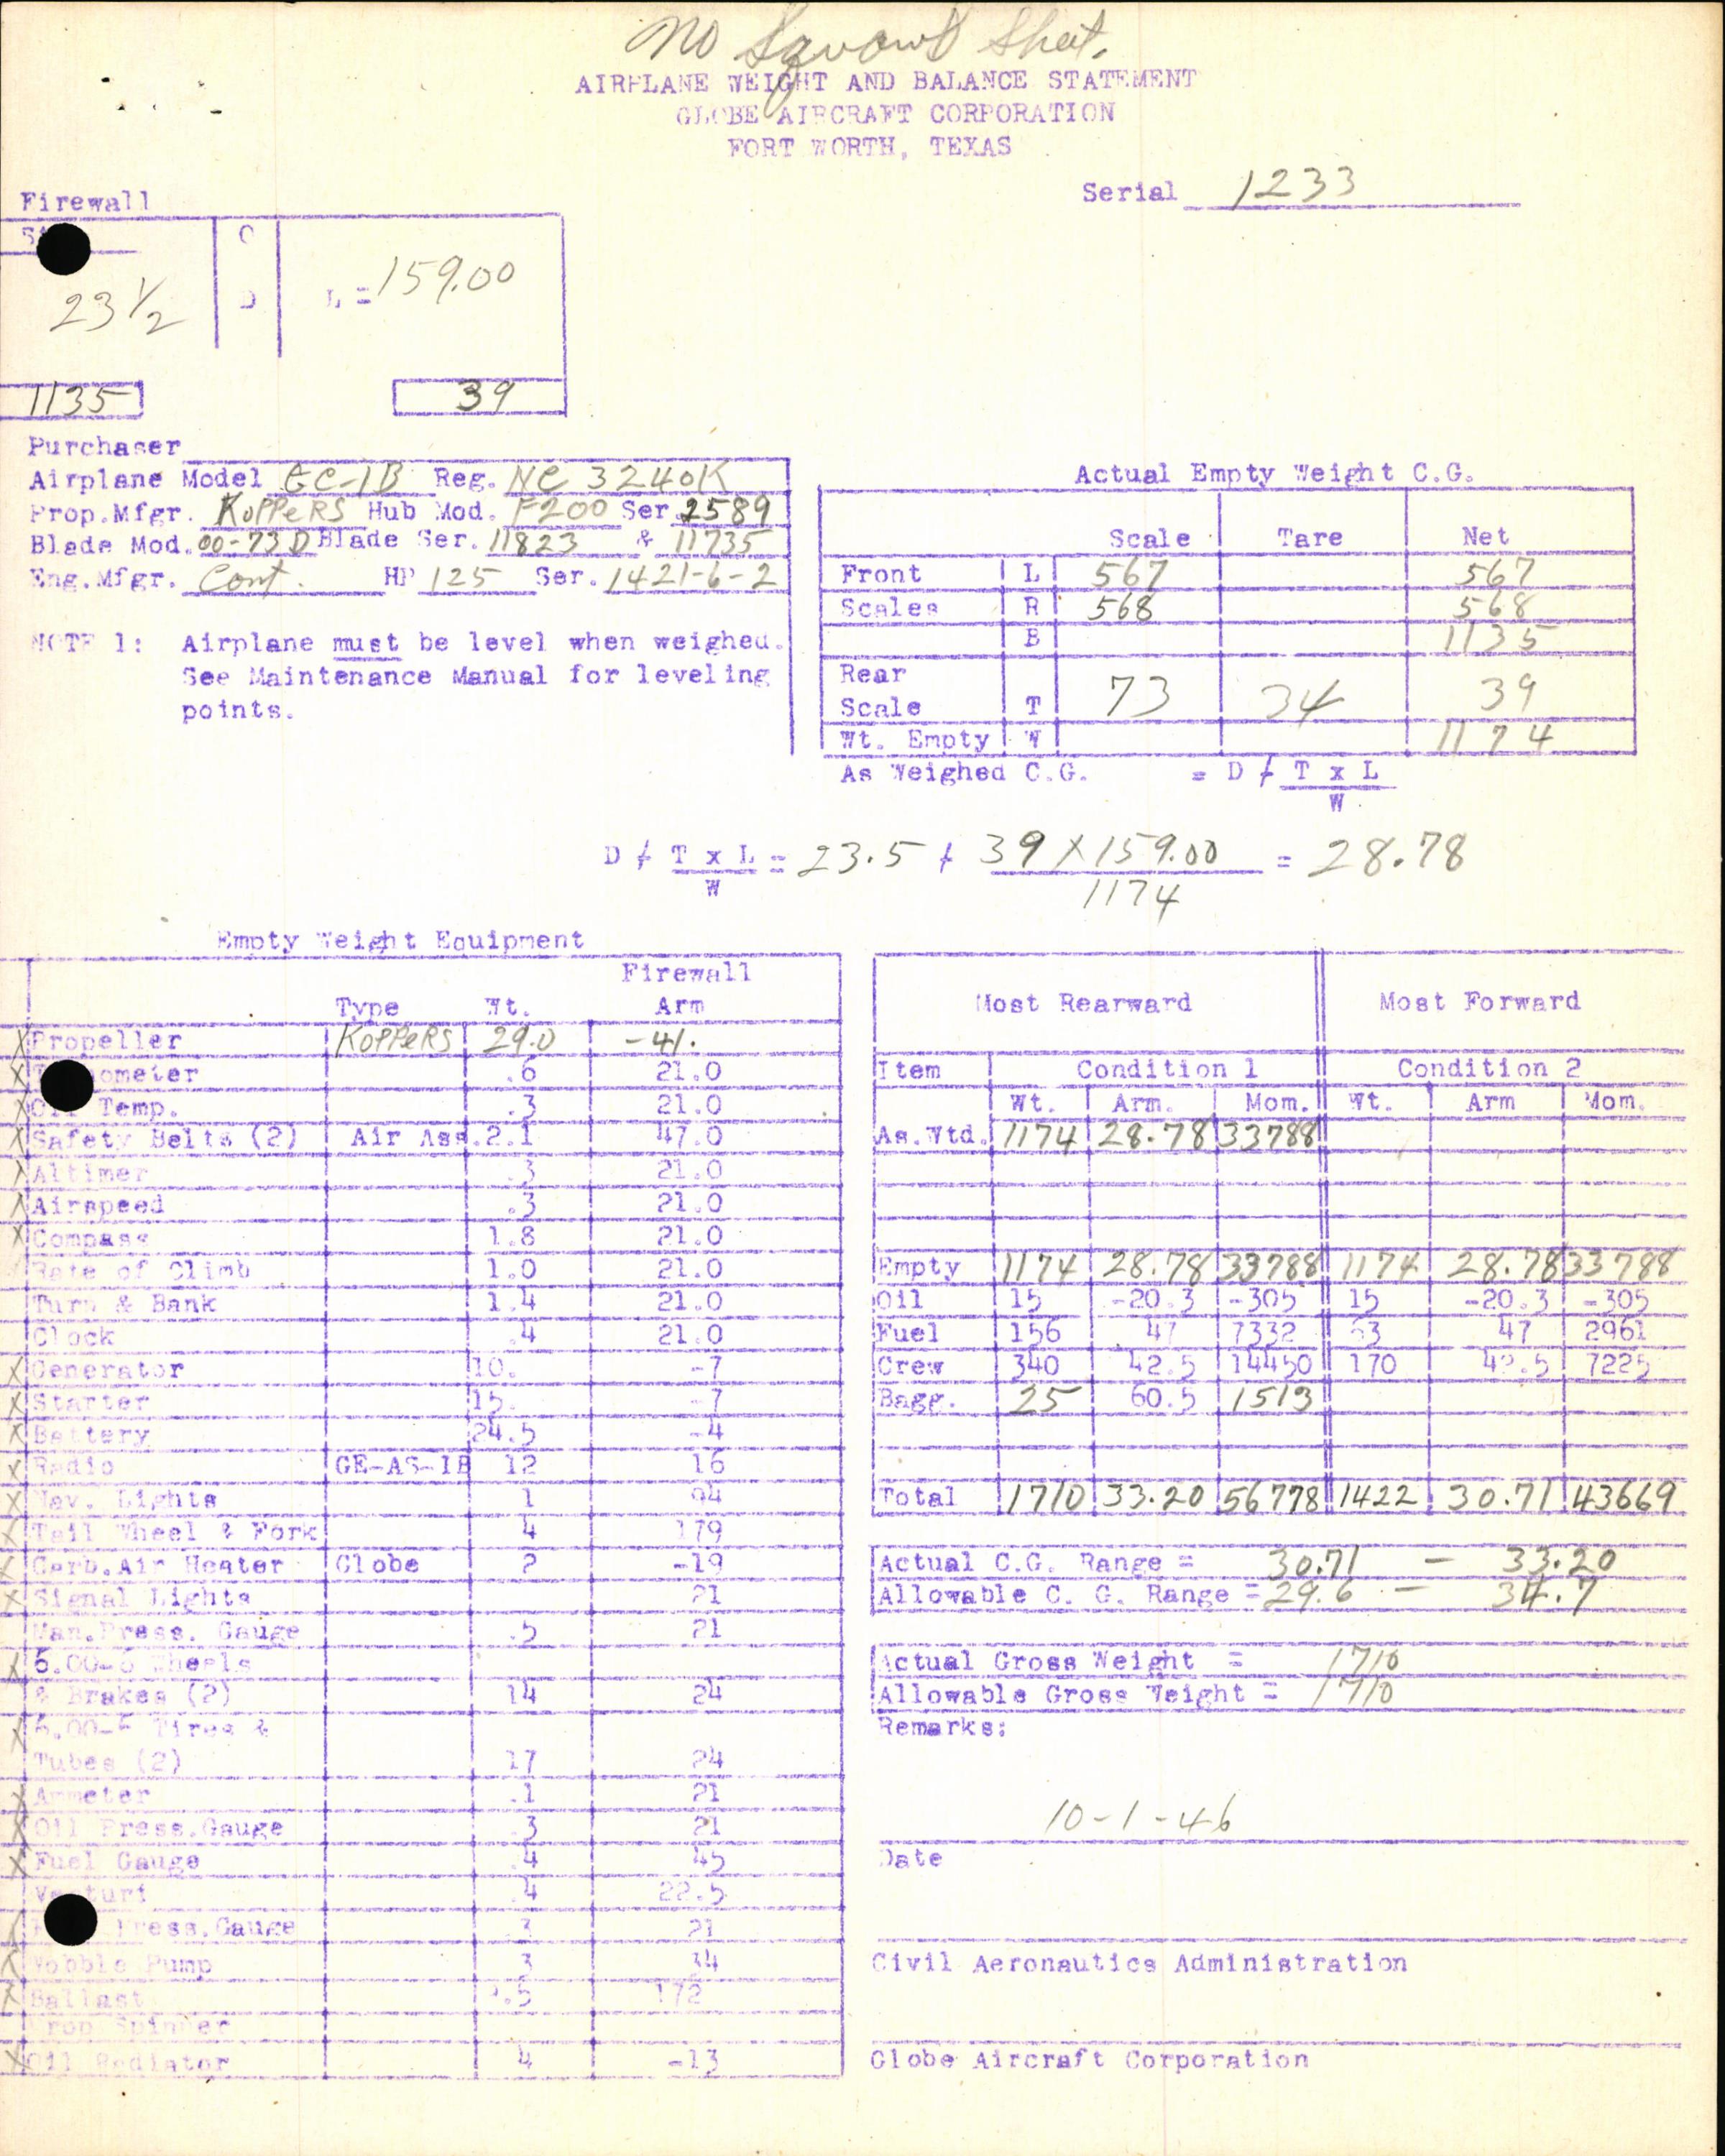 No Layout Sheet.
AIRPLANE WEIGHT AND BALANCE STATEMENT
GLOBE AIRCRAFT CORPORATION
FORT WORTH, TEXAS
Serial 1233
Firewall
C
23 1/2 D L = 159.00
1135 39
Purchaser
Airplane Model GC-1B Reg. NC 3240K
Prop.Mfgr. KoPPeRS Hub Mod. F200 Ser. 2589
Blade Mod. 00-73D Blade Ser. 11823 & 11735
Eng.Mfgr. Cont. HP 125 Ser. 1421-6-2
NOTE 1: Airplane must be level when weighed.
See Maintenance Manual for leveling
points.
Actual Empty Weight C.G.
Scale Tare Net
Front L 567 567
Scales R 568 568
B 1135
Rear
Scale T 73 34 39
Wt. Empty W 1174
As Weighed C.G. = D + T x L
W
D + T x L = 23.5 + 39 X 159.00 = 28.78
W 1174
Empty Weight Equipment
Firewall
Type Wt. Arm
X Propeller KoPPeRS 29.0 -41.
X ometer .6 21.0
X Oil Temp. .3 21.0
X Safety Belts (2) Air Ass. 2.1 47.0
X Altimer .3 21.0
X Airspeed .3 21.0
X Compass 1.8 21.0
Rate of Climb 1.0 21.0
Turn & Bank 1.4 21.0
Clock .4 21.0
X Generator 10. -7
X Starter 15. -7
X Battery 24.5 -4
X Radio GE-AS-1B 12 16
X Nav. Lights 1 94
X Tail Wheel & Fork 4 179
X Carb.Air Heater Globe 2 -19
X Signal Lights 21
Man.Press. Gauge .5 21
X 6.00-6 Wheels
& Brakes (2) 14 24
X 6.00-6 Tires &
Tubes (2) 17 24
X Ammeter .1 21
X Oil Press.Gauge .3 21
X Fuel Gauge .4 45
Venturi .4 22.5
X Press.Gauge .3 21
X Wobble Pump 3 34
X Ballast .5 172
Prop Spinner
X Oil Radiator 4 -13
Most Rearward Most Forward
Item Condition 1 Condition 2
Wt. Arm. Mom. Wt. Arm Mom.
As.Wtd. 1174 28.78 33788
Empty 1174 28.78 33788 1174 28.78 33788
Oil 15 -20.3 -305 15 -20.3 -305
Fuel 156 47 7332 63 47 2961
Crew 340 42.5 14450 170 42.5 7225
Bagg. 25 60.5 1513
Total 1710 33.20 56778 1422 30.71 43669
Actual C.G. Range = 30.71 — 33.20
Allowable C. G. Range = 29.6 — 34.7
Actual Gross Weight = 1710
Allowable Gross Weight = 1710
Remarks:
10-1-46
Date
Civil Aeronautics Administration
Globe Aircraft Corporation